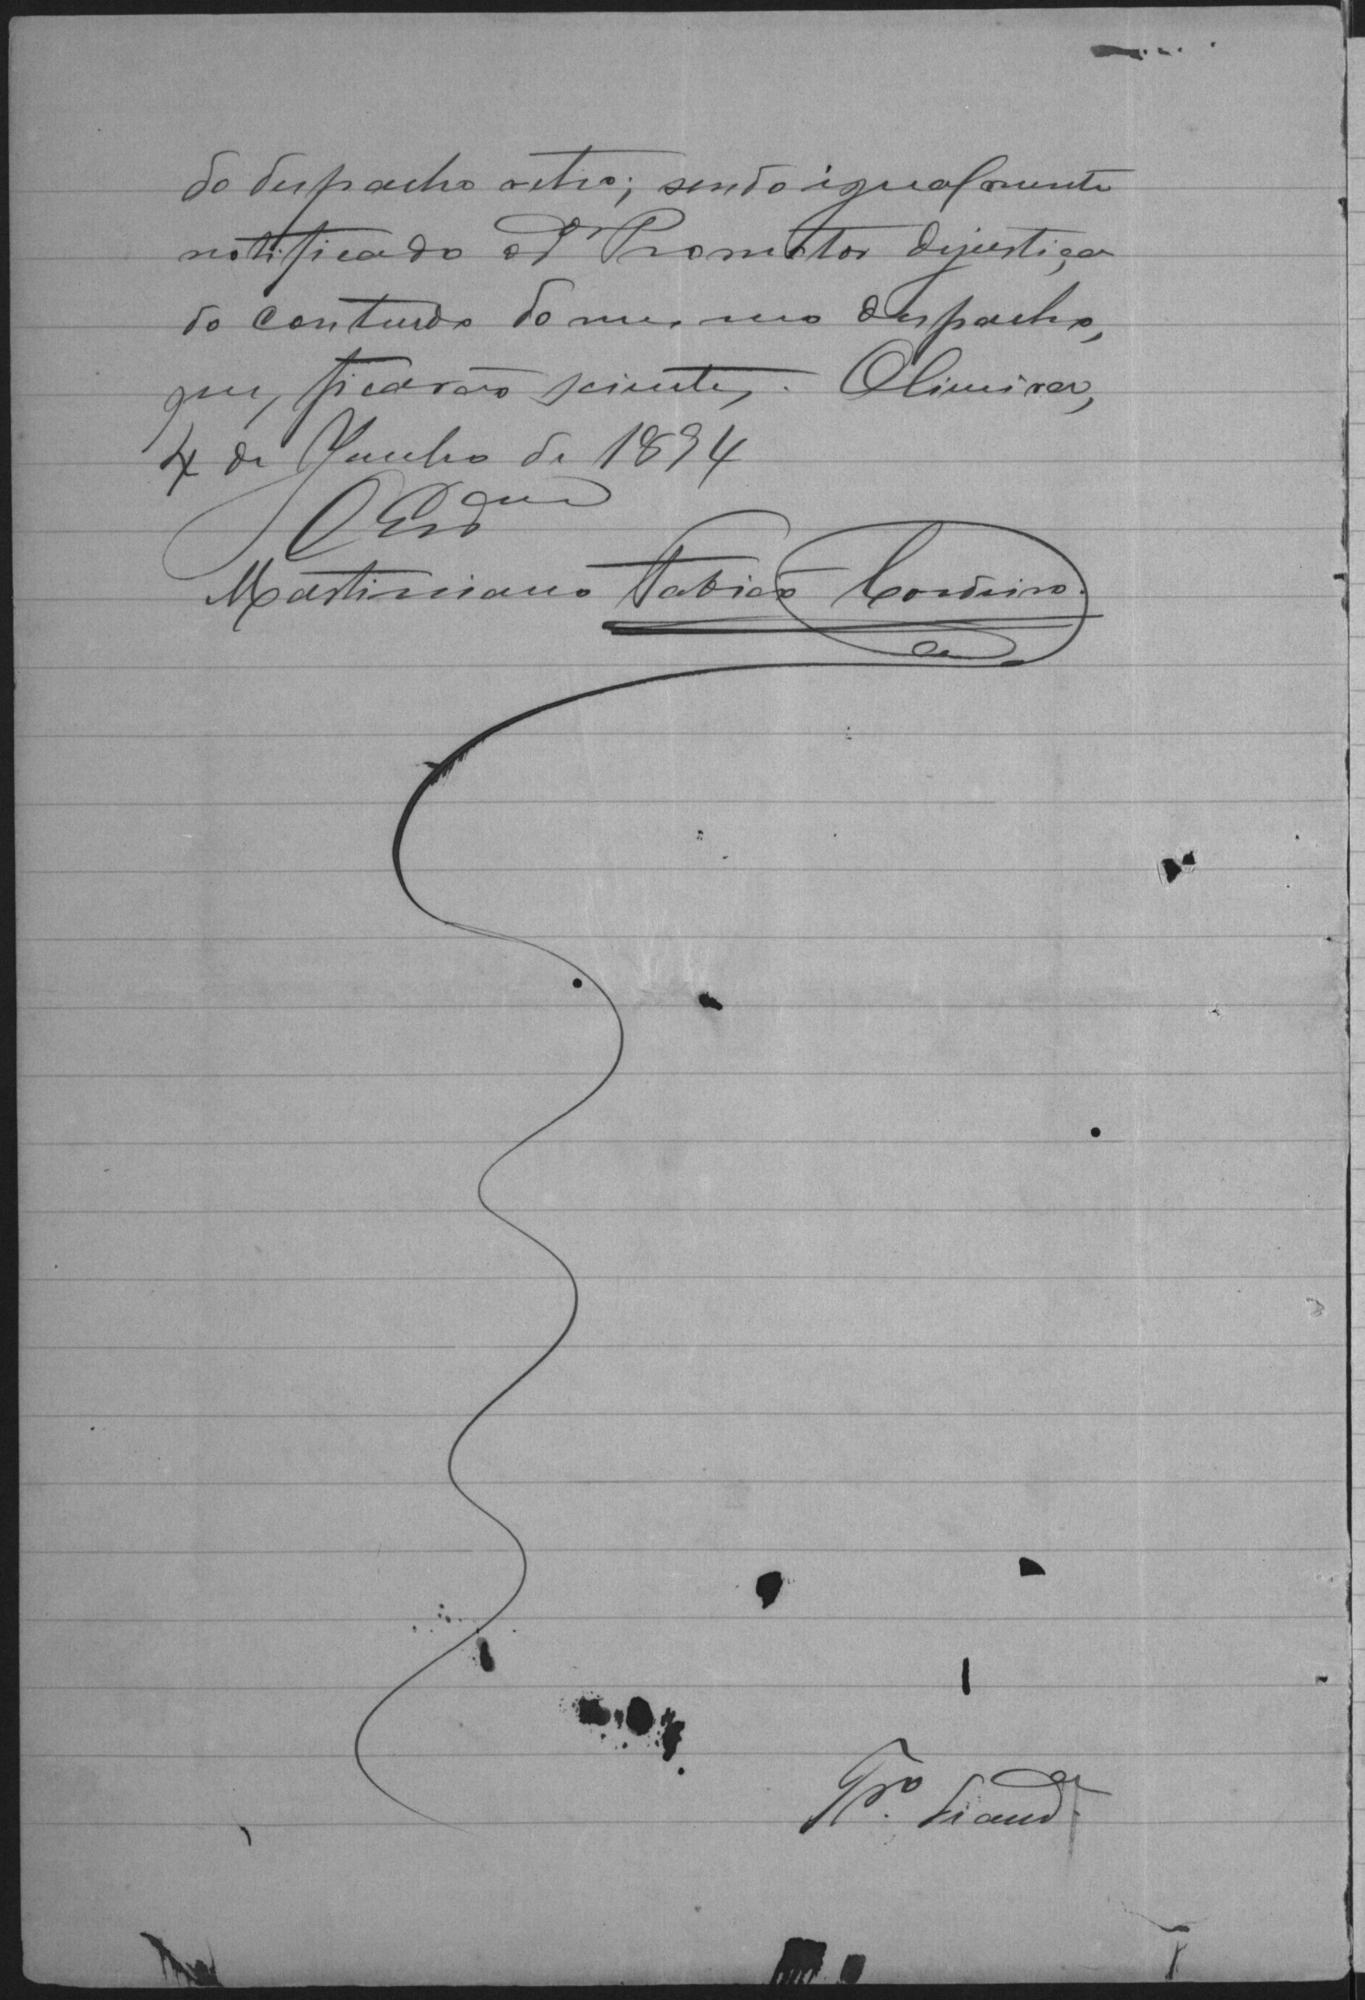 do despacho retro; sendo igualmente
notificado o Dr Promotor dejustiça
do conteudo do mesmo despacho,
que, ficarão scientes. Oliveira,
4 de Junho de 1894
O Escr
Martiniano Fabião Cordeiro.